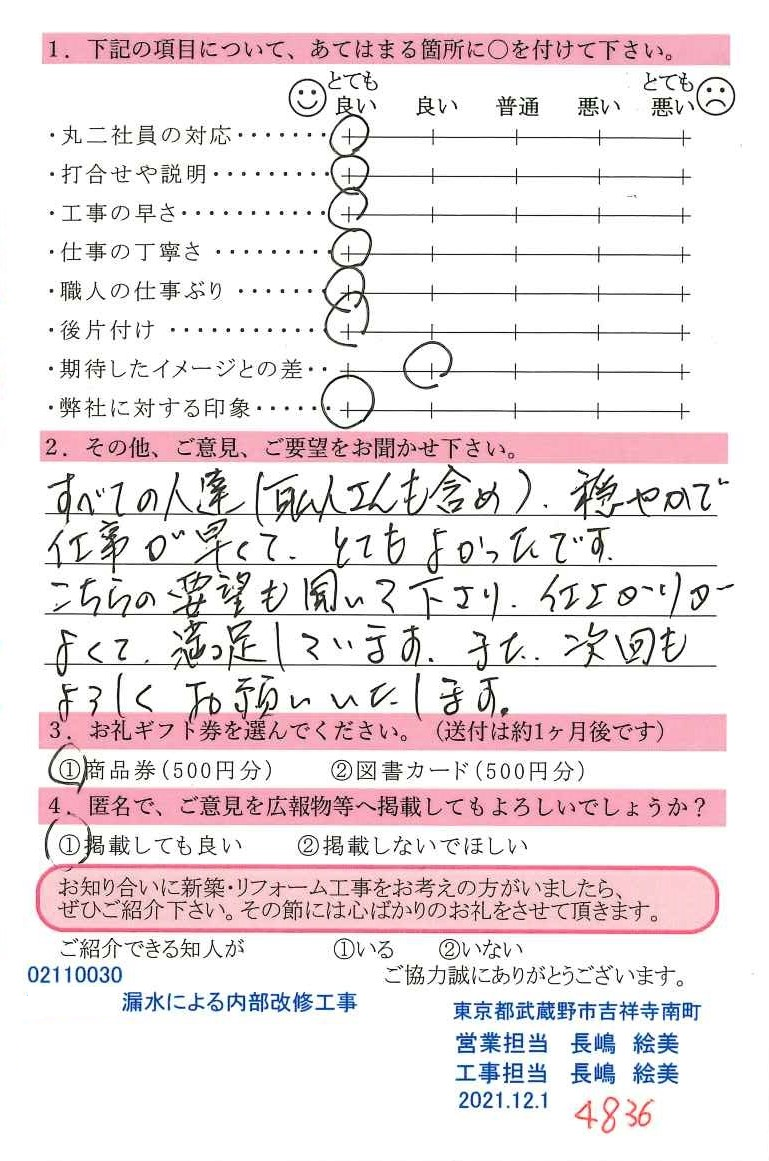 1．下記の項目について、あてはまる箇所に○を付けて下さい。
とても良い 良い 普通 悪い とても悪い
・丸二社員の対応・・・・・・・
・打合せや説明・・・・・・・・・
・工事の早さ・・・・・・・・・・・
・仕事の丁寧さ ・・・・・・・・・
・職人の仕事ぶり ・・・・・・・
・後片付け ・・・・・・・・・・・・
・期待したイメージとの差・・
・弊社に対する印象・・・・・・
2．その他、ご意見、ご要望をお聞かせ下さい。
すべての人達(職人さんも含め)、穏やかで
仕事が早くて、とてもよかったです。
こちらの要望も聞いて下さり、仕上がりが
よくて、満足しています。また、次回も
よろしくお願いいたします。
3．お礼ギフト券を選んでください。（送付は約1ヶ月後です）
①商品券（500円分） ②図書カード（500円分）
4．匿名で、ご意見を広報物等へ掲載してもよろしいでしょうか？
①掲載しても良い ②掲載しないでほしい
お知り合いに新築・リフォーム工事をお考えの方がいましたら、
ぜひご紹介下さい。その節には心ばかりのお礼をさせて頂きます。
ご紹介できる知人が ①いる ②いない
02110030 ご協力誠にありがとうございます。
漏水による内部改修工事
東京都武蔵野市吉祥寺南町
営業担当 長嶋 絵美
工事担当 長嶋 絵美
2021.12.1
4836